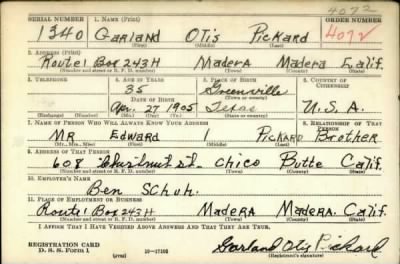 4072
SERIAL NUMBER 1. NAME (Print) ORDER NUMBER
1340 Garland Otis Pickard 4072
(First) (Middle) (Last)
2. ADDRESS (Print)
Route 1 Box 243H Madera Madera Calif.
(Number and street or R. F. D. number) (Town) (County) (State)
3. TELEPHONE 4. AGE IN YEARS 5. PLACE OF BIRTH 6. COUNTRY OF CITIZENSHIP
35 Greenville
DATE OF BIRTH (Town or county)
Apr. 27 1905 Texas U.S.A.
(Mo.) (Day) (Yr.) (State or country)
7. NAME OF PERSON WHO WILL ALWAYS KNOW YOUR ADDRESS 8. RELATIONSHIP OF THAT PERSON
MR Edward I Pickard Brother
(Mr., Mrs., Miss) (First) (Middle) (Last)
9. ADDRESS OF THAT PERSON
608 Chestnut St. Chico Butte Calif.
(Number and street or R. F. D. number) (Town) (County) (State)
10. EMPLOYER'S NAME
Ben Schuh.
11. PLACE OF EMPLOYMENT OR BUSINESS
Route 1 Box 243H Madera Madera. Calif.
(Number and street or R. F. D. number) (Town) (County) (State)
I AFFIRM THAT I HAVE VERIFIED ABOVE ANSWERS AND THAT THEY ARE TRUE.
REGISTRATION CARD
D. S. S. Form 1 (over) 16—17105 Garland Otis Pickard
(Registrant's signature)